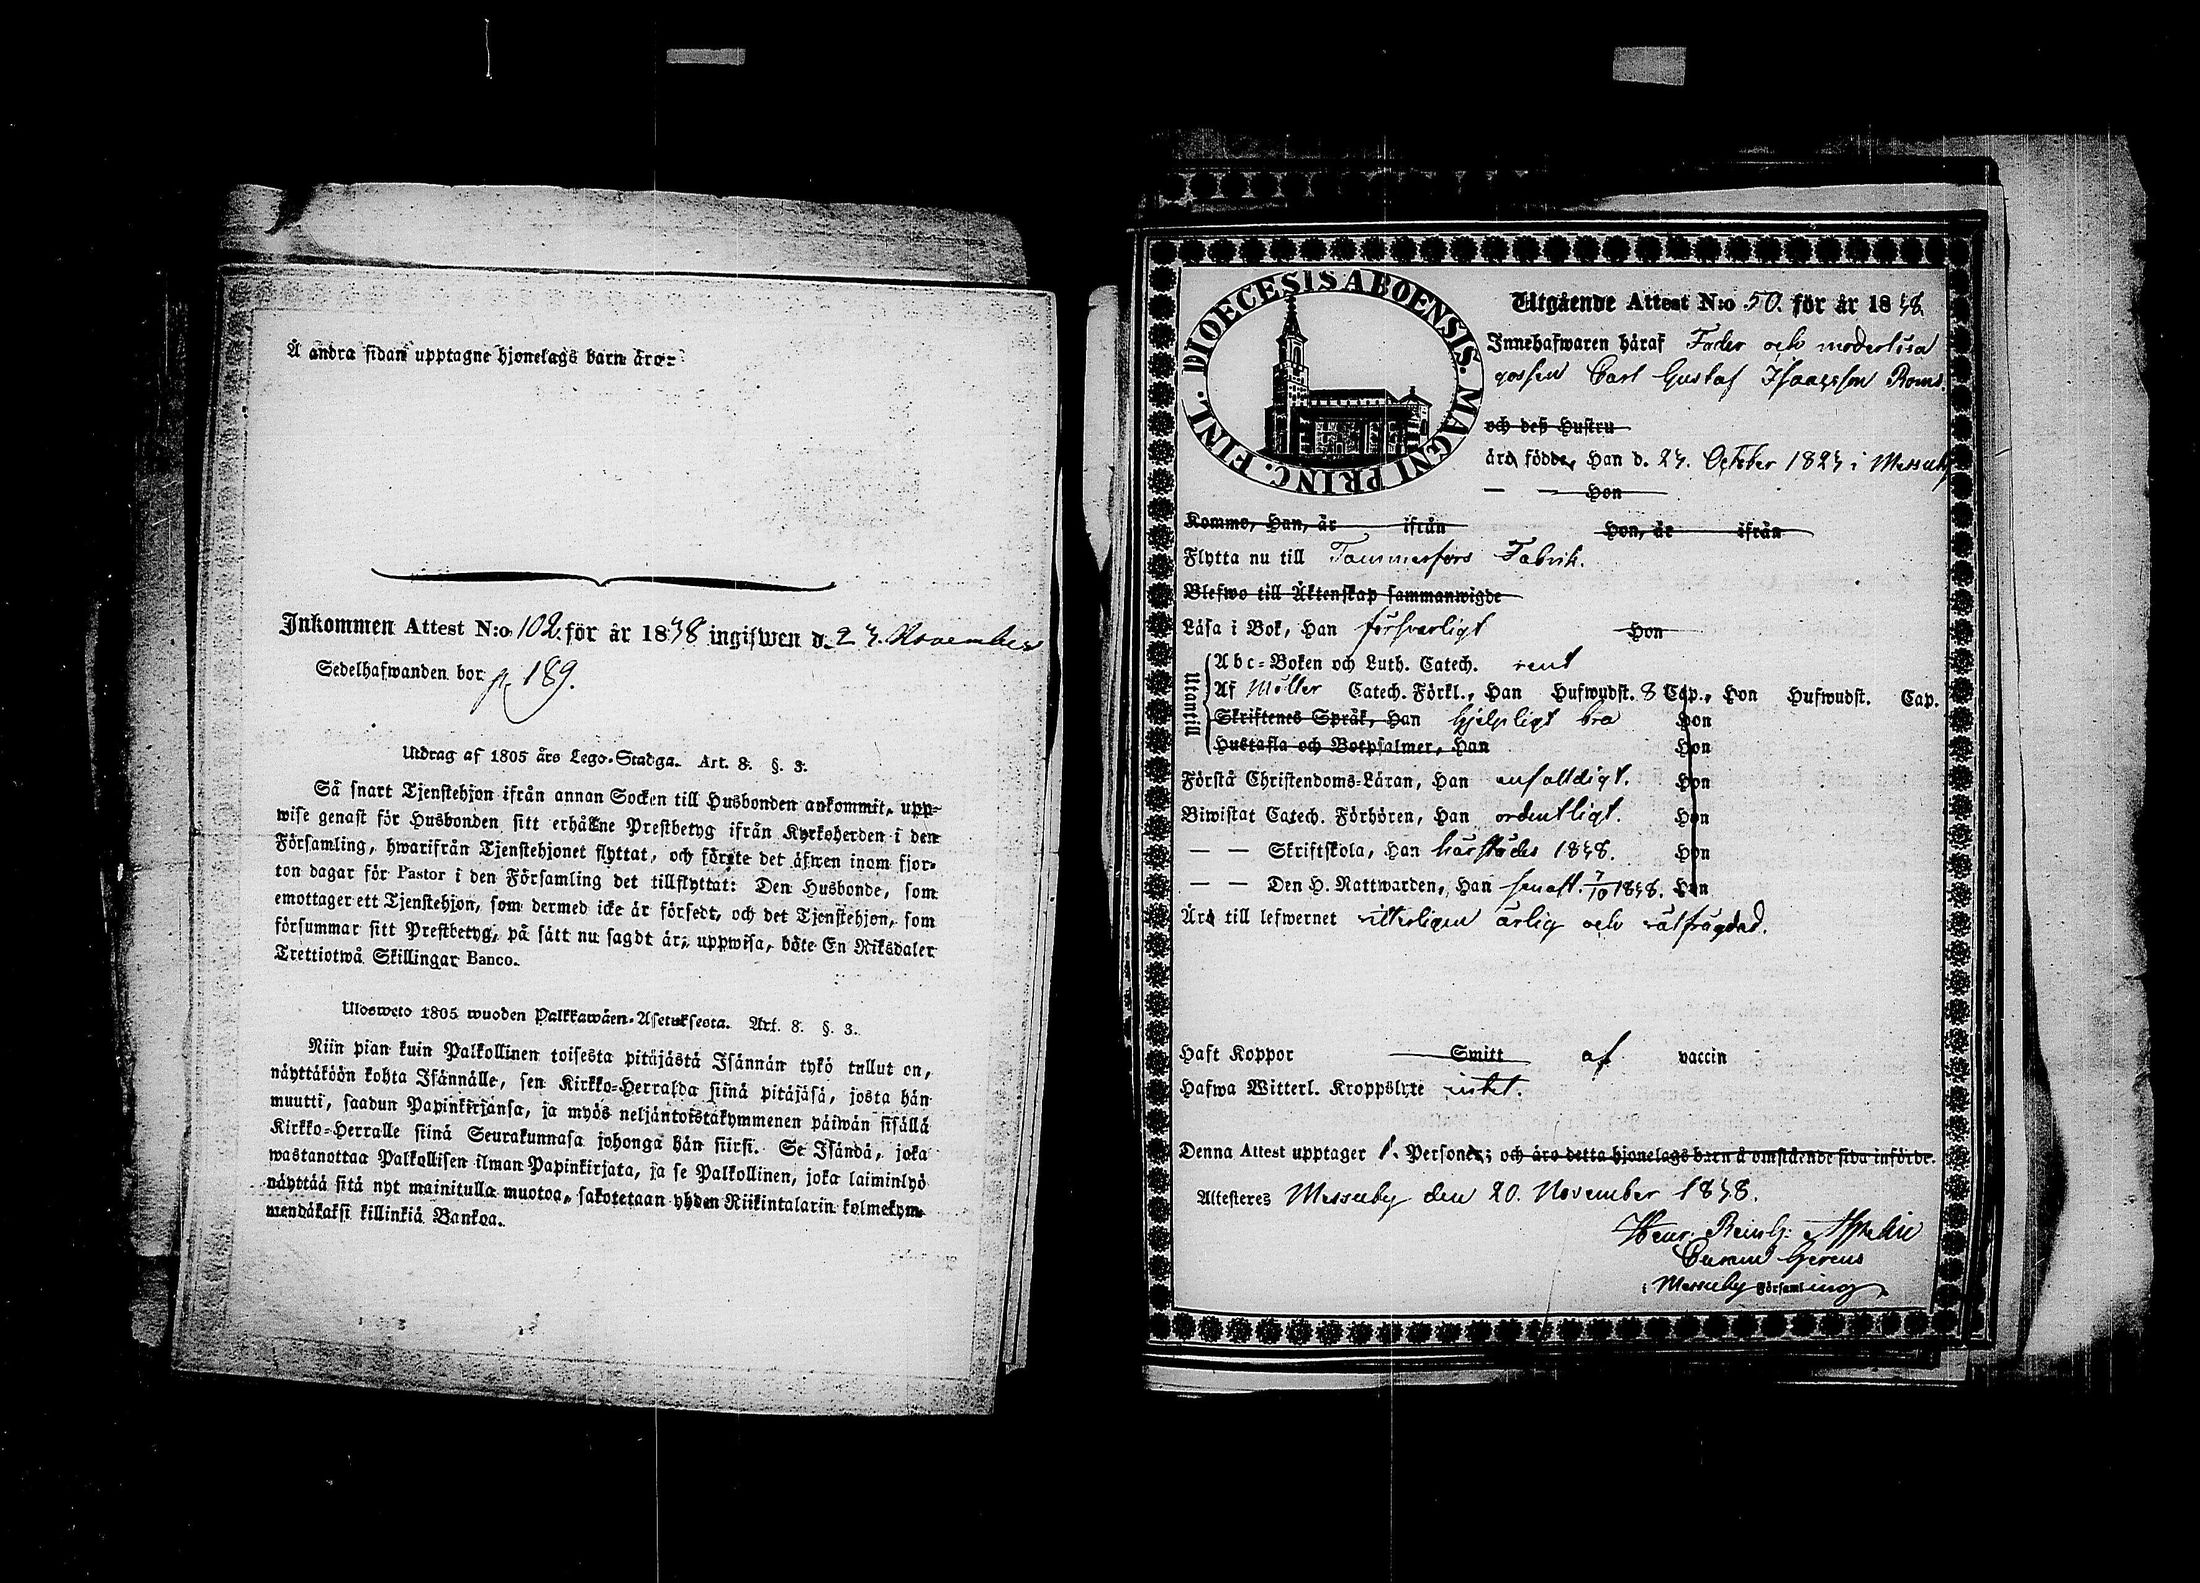 Å andra sidan upptagne hjonelags barn äro:
Inkommen Attest N:o 102. för år 1848 ingifwen d. 24. November
Sedelhafwanden bor p. 189.
Utdrag af 1805 års Lego-Stadga. Art. 8. §. 3.
Så snart Tjenstehjon ifrån annan Socken till Husbonden ankommit, upp-
wise genast för Husbonden sitt erhållne Prestbetyg ifrån Kyrkoherden i den
Församling, hwarifrån Tjenstehjonet flyttat, och förete det äfwen inom fjor-
ton dagar för Pastor i den Församling det tillflyttat: Den Husbonde, som
emottager ett Tjenstehjon, som dermed icke är försedt, och det Tjenstehjon, som
försummar sitt Prestbetyg, på sätt nu sagdt är, uppwisa, böte En Riksdaler
Trettiotwå Skillingar Banco.
Ulosweto 1805 wuoden Palkkawäen-Asetuksesta. Art. 8. §. 3.
Niin pian kuin Palkollinen toisesta pitäjästä Isännän tykö tullut on,
näyttäköön kohta Isännälle, sen Kirkko-Herralda siinä pitäjäsä, josta hän
muutti, saadun Papinkirjansa, ja myös neljäntoistakymmenen päiwän sisällä
Kirkko-Herralle siinä Seurakunnasa johonga hän siirsi. Se Isändä, joka
wastanottaa Palkollisen ilman Papinkirjata, ja se Palkollinen, joka laiminlyö
näyttää sitä nyt mainitulla muotoa, sakotetaan yhden Riikintalarin kolmekym-
mendäkaksi killinkiä Bankoa.
DIOECESIS ABOENSIS. MAGNI PRINC. FINL.
Utgående Attest N:o 50. för år 1848.
Innehafwaren häraf Fader och moderlösa
gossen Carl Gustaf Isaacsson Roms.
och deß Hustru
äro födde, Han d. 24. October 1824 i Messuby
— — Hon
Kommo, Han, år ifrån Hon, år ifrån
Flytta nu till Tammerfors Fabrik.
Blefwo till Äktenskap sammanwigde
Läsa i Bok, Han försvarligt Hon
Utantill
Abc-Boken och Luth. Catech. rent
Af Möller Catech. Förkl., Han Hufwudst. 8 Cap., Hon Hufwudst. Cap.
Skriftenes Språk, Han hjelpligt bra Hon
Hustafla och Botpsalmer, Han Hon
Förstå Christendoms-Läran, Han enfalldigt. Hon
Biwistat Catech. Förhören, Han ordentligt. Hon
— — Skriftskola, Han härstädes 1848. Hon
— — Den H. Nattwarden, Han senast. 7/10 1848. Hon
Äro till lefwernet vitterligen ärlig och rätfrägdad.
Haft Koppor Smitt af vaccin
Hafwa Witterl. Kroppslyte intet.
Denna Attest upptager 1. Personer; och äro detta hjonelags barn å omstående sida införde.
Attesteres Messuby den 20. November 1848.
Henr. Reinh:
i Messuby Församling